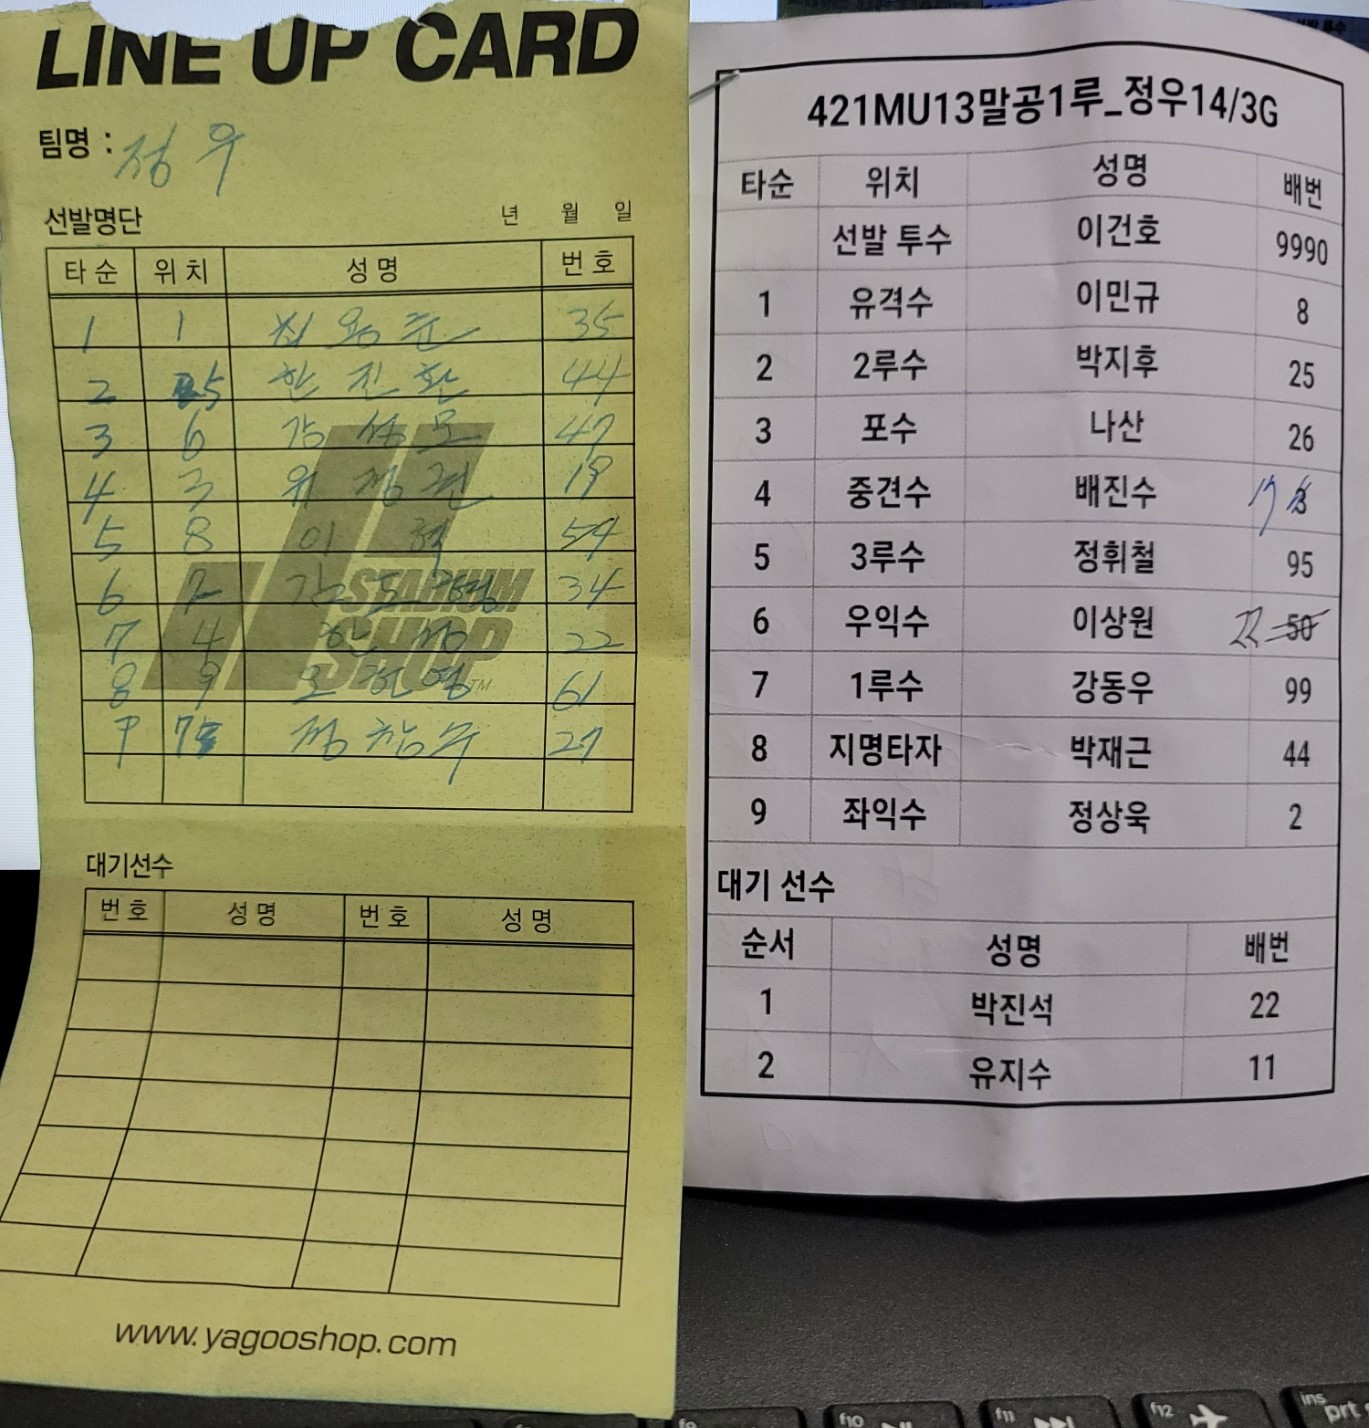 LINE UP CARD
팀명 : 정우
선발명단 년 월 일
타순 위치 성명 번호
1 1 35
2 5 한진환 44
3 6 강성모 47
4 3 위정건 19
5 8 이 54
6 34
7 4 22
8 9 오현영 61
9 7 정창수 27
STADIUM
SHOP™
대기선수
번호 성명 번호 성명
www.yagooshop.com
421MU13말공1루_정우14/3G
타순 위치 성명 배번
선발 투수 이건호 9990
1 유격수 이민규 8
2 2루수 박지후 25
3 포수 나산 26
4 중견수 배진수 17
5 3루수 정휘철 95
6 우익수 이상원 22 50
7 1루수 강동우 99
8 지명타자 박재근 44
9 좌익수 정상욱 2
대기 선수
순서 성명 배번
1 박진석 22
2 유지수 11
f10
f11
f12
ins
prt